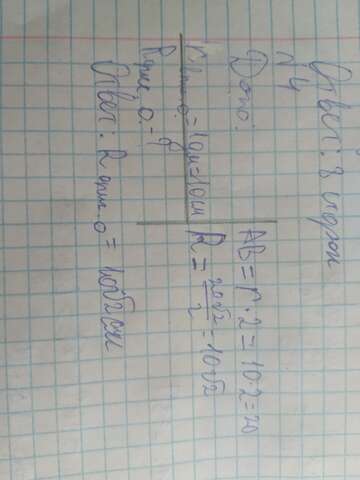 Ответ: 8 сторон
№4
Дано:
r впис. о. = 1дм = 10см
R опис. о. - ?
AB = r · 2 = 10 · 2 = 20
R = 20√2/2 = 10√2
Ответ: R опис. о = 10√2 см